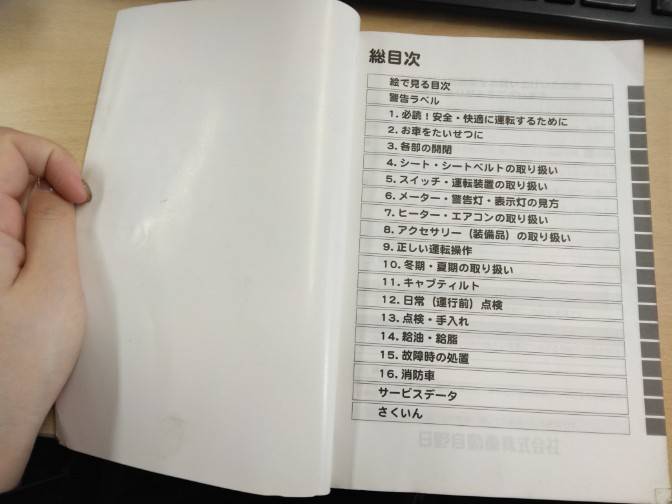 総目次
絵で見る目次
警告ラベル
1. 必読！安全・快適に運転するために
2. お車をたいせつに
3. 各部の開閉
4. シート・シートベルトの取り扱い
5. スイッチ・運転装置の取り扱い
6. メーター・警告灯・表示灯の見方
7. ヒーター・エアコンの取り扱い
8. アクセサリー（装備品）の取り扱い
9. 正しい運転操作
10. 冬期・夏期の取り扱い
11. キャブティルト
12. 日常（運行前）点検
13. 点検・手入れ
14. 給油・給脂
15. 故障時の処置
16. 消防車
サービスデータ
さくいん
日野自動車株式会社